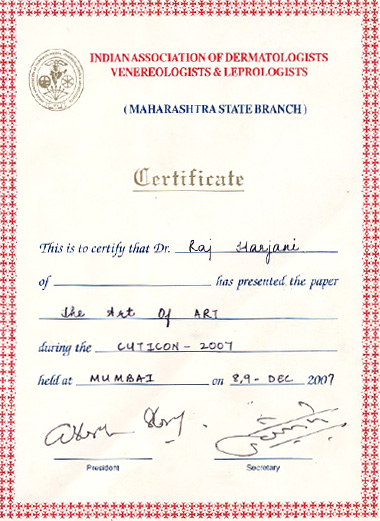 INDIAN ASSOCIATION OF DERMATOLOGISTS
VENEREOLOGISTS & LEPROLOGISTS
(MAHARASHTRA STATE BRANCH)
Certificate
This is to certify that Dr. Raj Harjani
of has presented the paper
The Art Of ART
during the CUTICON - 2007
held at MUMBAI on 8,9 - DEC 2007
President Secretary